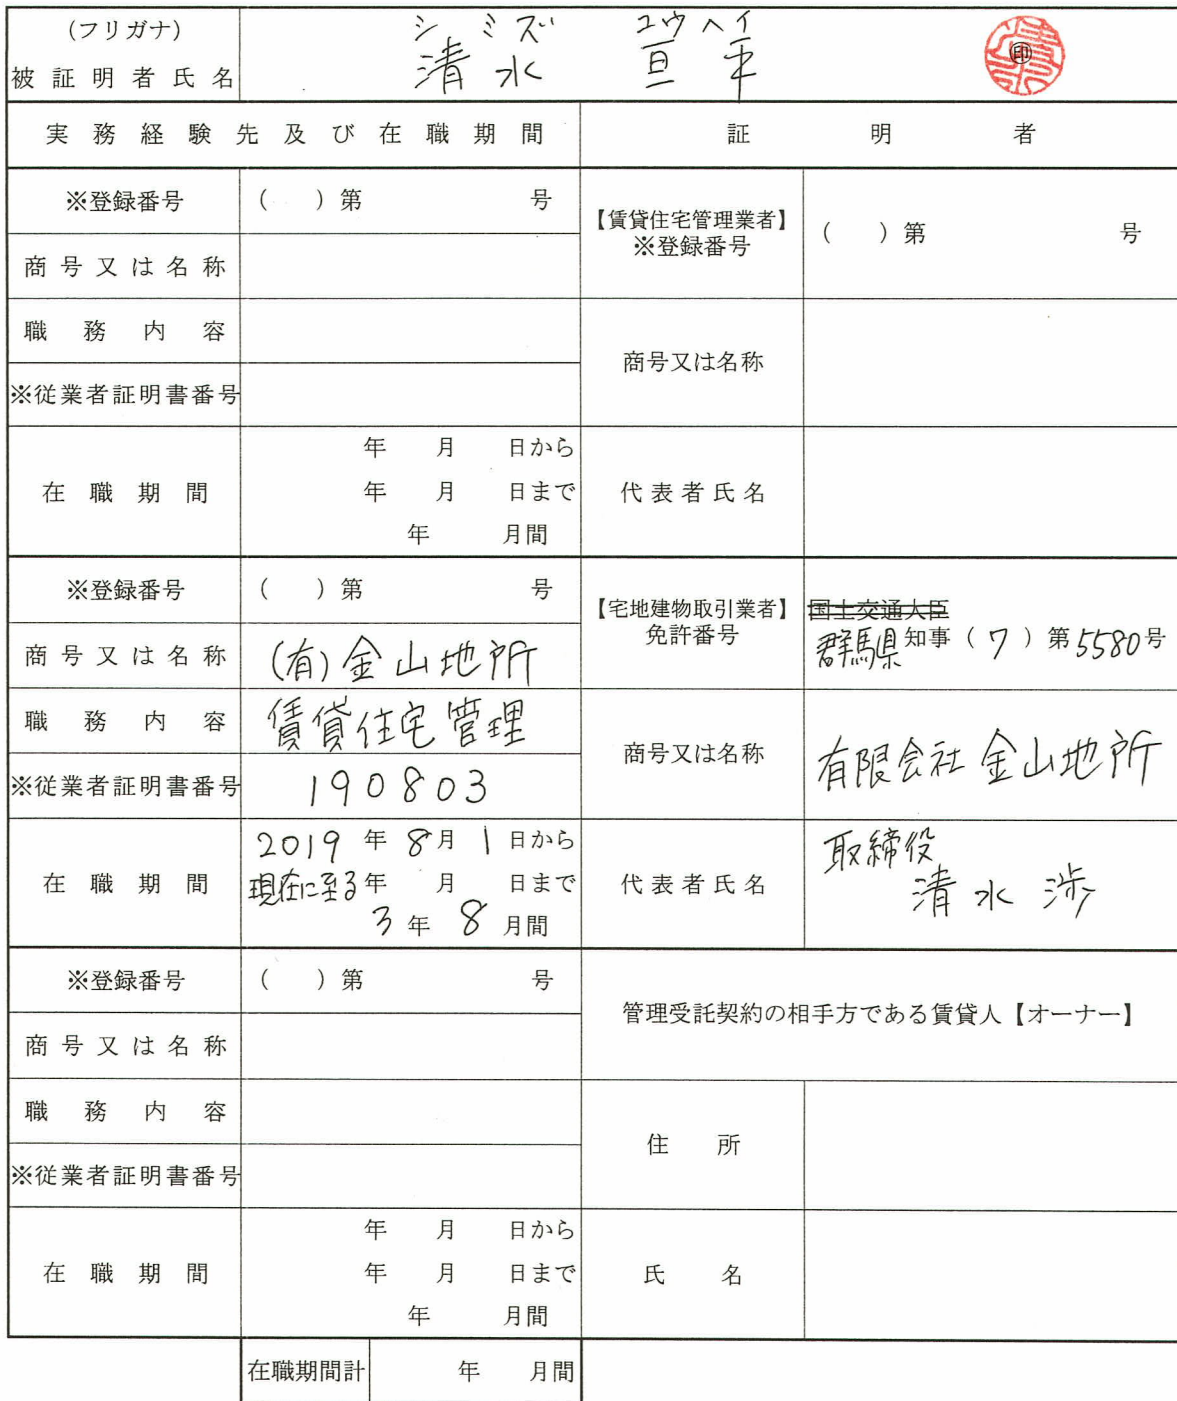 (フリガナ) シミズ ユウヘイ
被証明者氏名 清水 亘平 ㊞
実務経験先及び在職期間 証明者
※登録番号 ( )第 号
商号又は名称
職務内容
※従業者証明書番号
在職期間 年 月 日から
年 月 日まで
年 月間
【賃貸住宅管理業者】
※登録番号 ( )第 号
商号又は名称
代表者氏名
※登録番号 ( )第 号
商号又は名称 (有)金山地所
職務内容 賃貸住宅管理
※従業者証明書番号 190803
在職期間 2019年 8月 1日から
現在に至る年 月 日まで
3年 8月間
【宅地建物取引業者】
免許番号
国土交通大臣
群馬県知事(7)第5580号
商号又は名称 有限会社 金山地所
代表者氏名 取締役
清水 渉
※登録番号 ( )第 号
商号又は名称
職務内容
※従業者証明書番号
在職期間 年 月 日から
年 月 日まで
年 月間
管理受託契約の相手方である賃貸人【オーナー】
住所
氏名
在職期間計 年 月間